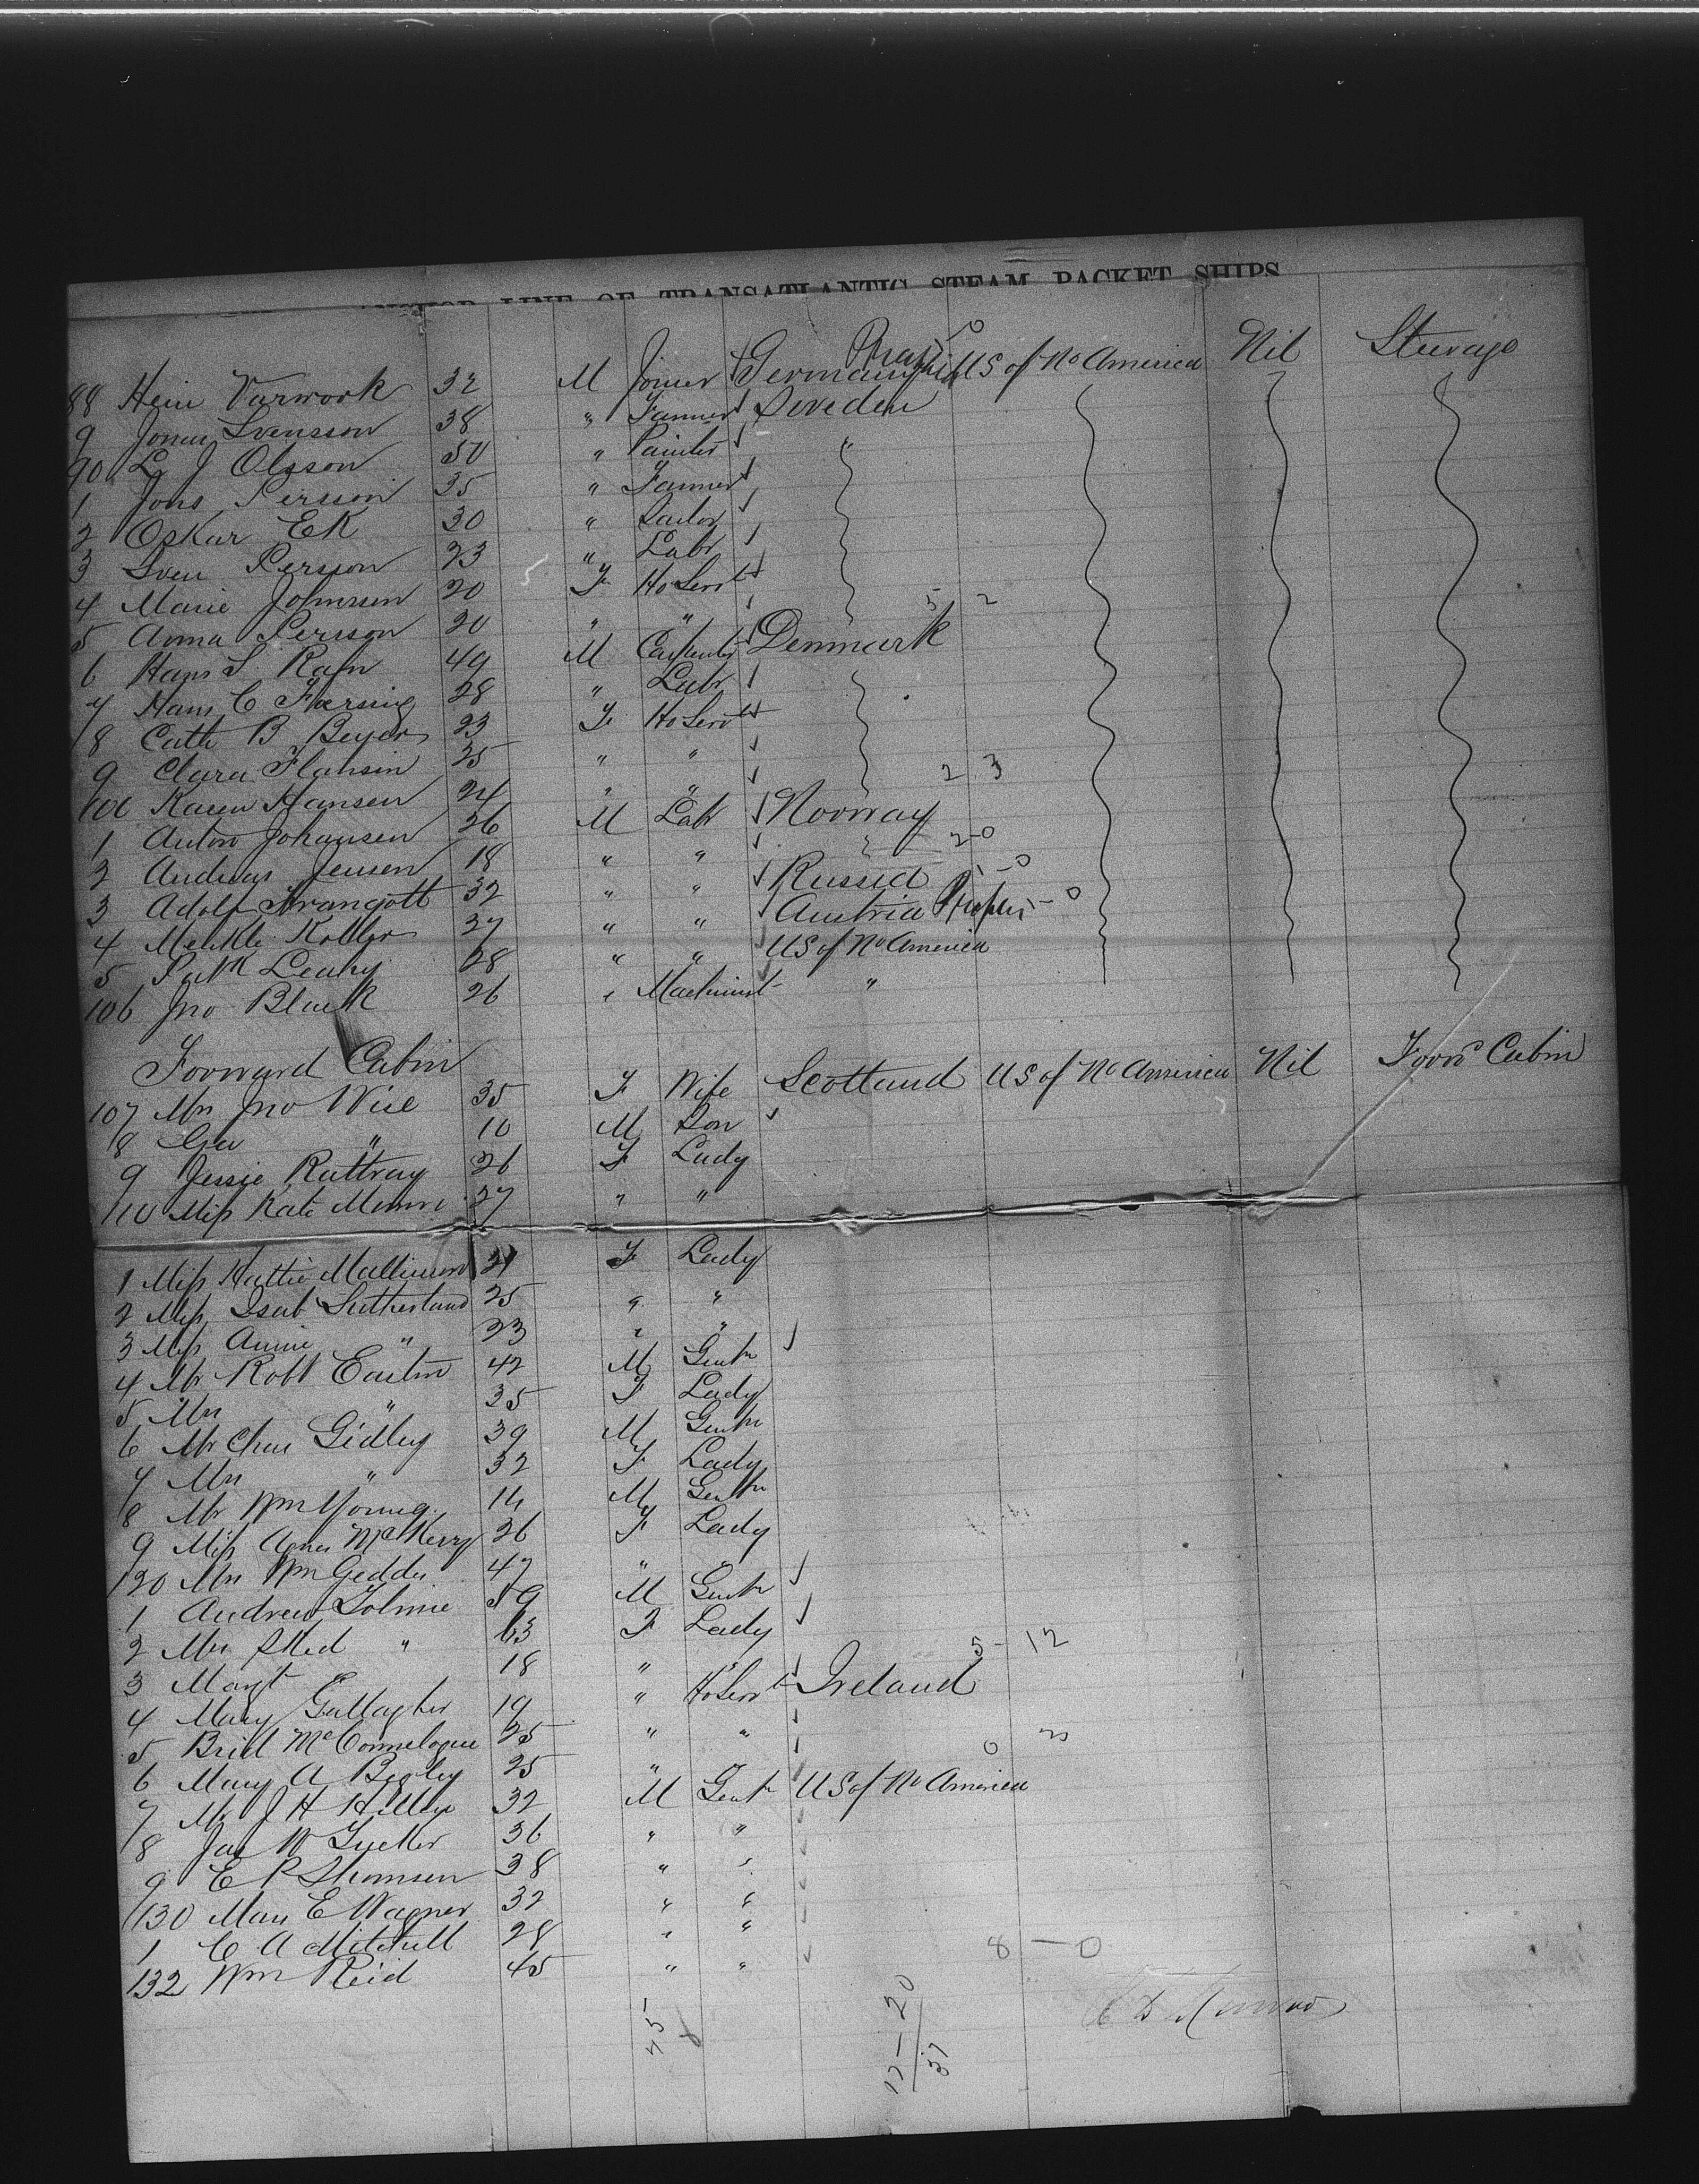 ANCHOR LINE OF TRANSATLANTIC STEAM PACKET SHIPS
88 Hein Varwork 32 M Joiner Germany US of No America Nil Steerage
9 Jonas Svensson 38 " Farmer Sweden
90 L J Olsson 50 " Painter "
1 Jons Persson 35 " Farmer
2 Oskar Ek 30 " Sailor
3 Sven Persson 23 " Labr
4 Marie Johnssen 20 F Ho Servt
5 Anna Persson 20 " " 5 2
6 Hans S Rafn 49 M Carpenter Denmark
7 Hans C 28 " Labr
8 Cath B Beyer 23 F Ho Servt
9 Clara Hansin 25 " "
100 Karen Hansen 24 " " 2 3
1 Anton Johansen 26 M Labr Norway
2 Andreas Jensen 18 " " 2-0
3 Adolf 32 " " Russia 1-0
4 Kobler 27 " " Austria -0
5 Patk Leahy 28 " " US of No America
106 Jno Black 26 " Machinist "
Forward Cabin
107 Mrs Jno Wise 35 F Wife Scotland US of No America Nil Forwd Cabin
8 Geo " 10 M Son
9 Jessie Rattray 26 F Lady
110 Miss Kate Munro 27 " "
1 Miss Hattie Mallinson 21 F Lady
2 Miss Isab Sutherland 25 " "
3 Miss Annie " 23 " "
4 Mr Robt Easton 42 M Gentn
5 Mrs " 35 F Lady
6 Mr Chas Gidley 39 M Gentn
7 Mrs " 32 F Lady
8 Mr Wm Young 14 M Gentn
9 Miss Agnes McKerry 26 F Lady
120 Mrs Wm Geddes 47 " "
1 Andrew Tolmie 59 M Gentn
2 Mrs " 63 F Lady
3 Margt " 18 " " 5-12
4 Mary Gallagher 19 " Ho Servt Ireland
5 Brid McConnelogue 25 " "
6 Mary A Begley 25 " " 0
7 Mr J H 32 M Gentn US of No America
8 Jas W Tucker 36 " "
9 E P Thomsen 38 " "
130 Man E Wagner 32 " "
1 C A Mitchell 28 " "
132 Wm Reid 45 " "
8-0
17-20
37